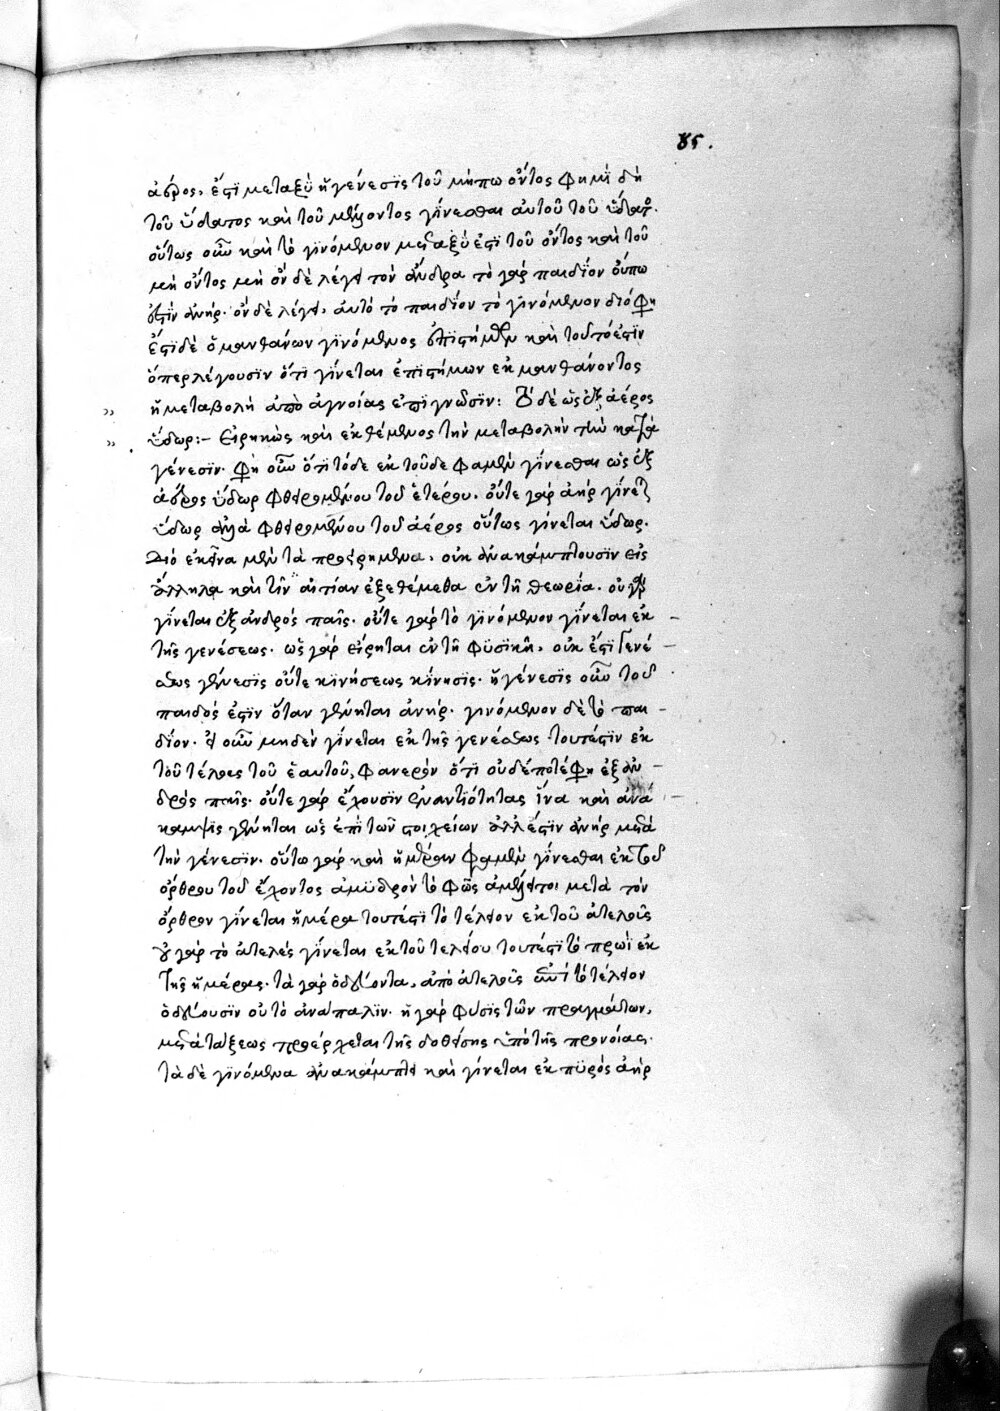 85.
ἀέρος. ἔστι μεταξὺ ἡ γένεσϊς τοῦ μήπω ὄντος φημὶ δὴ
τοῦ ὕδατος καὶ τοῦ μέλλοντος γίνεσθαι αὐτοῦ τοῦ ὕδατος.
οὕτως οὖν καὶ τὸ γϊνόμενον μεταξὺ ἐστὶ τοῦ ὄντος καὶ τοῦ
μὴ ὄντος μὴ ὂν δὲ λέγει τὸν ἄνδρα τὸ γὰρ παιδίον οὔπω
ἐστὶν ἀνήρ. ὂν δὲ λέγει, αὐτὸ τὸ παιδίον τὸ γινόμενον διό φη
ἔστϊ δὲ ὁ μανθάνων γϊνόμενος ἐπιστήμων καὶ τοῦτό ἐστϊν
ὅπερ λέγουσϊν ὅτι γίνεται ἐπιστήμων ἐκ μανθάνοντος
ἡ μεταβολὴ ἀπὸ ἀγνοίας ἐπὶ γνῶσϊν: Τὸ δὲ ὡς ἐξ ἀέρος
ὕδωρ:– Εἰρηκὼς καὶ ἐκθέμενος τὴν μεταβολὴν τὴν κατὰ
γένεσϊν. φη οὖν ὅτϊ τόδε ἐκ τοῦδε φαμὲν γίνεσθαι ὡς ἐξ
ἀέρος ὕδωρ φθειρομένου τοῦ ἑτέρου. οὔτε γὰρ ἀὴρ γίνεται
ὕδωρ ἀλλὰ φθειρομένου τοῦ ἀέρος οὕτως γίνεται ὕδωρ.
Διὸ ἐκεῖνα μὲν τὰ προειρημένα, οὐκ ἀνακάμπτουσϊν εἰς
ἄλληλα καὶ τὴν αἰτίαν ἐξεθέμεθα ἐν τῇ θεωρίᾳ. οὐ γὰρ
γίνεται ἐξ ἀνδρός παῖς. οὔτε γὰρ τὸ γϊνόμενον γίνεται ἐκ
τῆς γενέσεως. ὡς γὰρ εἴρηται ἐν τῇ φυσϊκῇ, οὐκ ἔστϊ γενέ
σεως γένεσϊς οὔτε κϊνήσεως κίνησϊς. ἡ γένεσϊς οὖν τοῦ
παιδός ἐστϊν ὅταν γένηται ἀνήρ. γινόμενον δὲ τὸ παι
δίον. εἰ οὖν μηδὲν γίνεται ἐκ τῆς γενέσεως τουτέστϊν ἐκ
τοῦ τέλους τοῦ ἑαυτοῦ, φανερὸν ὅτϊ οὐδέποτέ φη ἐξ ἀν
δρὸς παῖς. οὔτε γὰρ ἔχουσϊν ἐναντϊότητας ἵνα καὶ ἀνά
καμψϊς γένηται ὡς ἐπὶ τῶν στοιχείων ἀλλ' ἔστϊν ἀνὴρ μετὰ
τὴν γένεσϊν. οὕτω γὰρ καὶ ἡμέραν φαμὲν γίνεσθαι ἐκ τοῦ
ὄρθρου τοῦ ἔχοντος ἀμϋδρὸν τὸ φῶς ἀμέλει τοι μετὰ τὸν
ὄρθρον γίνεται ἡμέρα τουτέστϊ τὸ τέλειον ἐκ τοῦ ἀτελοῦς
οὐ γὰρ τὸ ἀτελές γίνεται ἐκ τοῦ τελείου τουτέστϊ τὸ πρωῒ ἐκ
τῆς ἡμέρας. τὰ γὰρ ὁδεύοντα, ἀπὸ ἀτελοῦς ἐπὶ τὸ τέλειον
ὁδεύουσϊν οὐ τὸ ἀναπαλϊν. ἡ γὰρ φύσϊς τῶν πραγμάτων,
μετὰ τάξεως προέρχεται τῆς δοθείσης ὑπὸ τῆς προνοίας.
τὰ δὲ γϊνόμενα ἀνακάμπτει καὶ γίνεται ἐκ πϋρὸς ἀὴρ